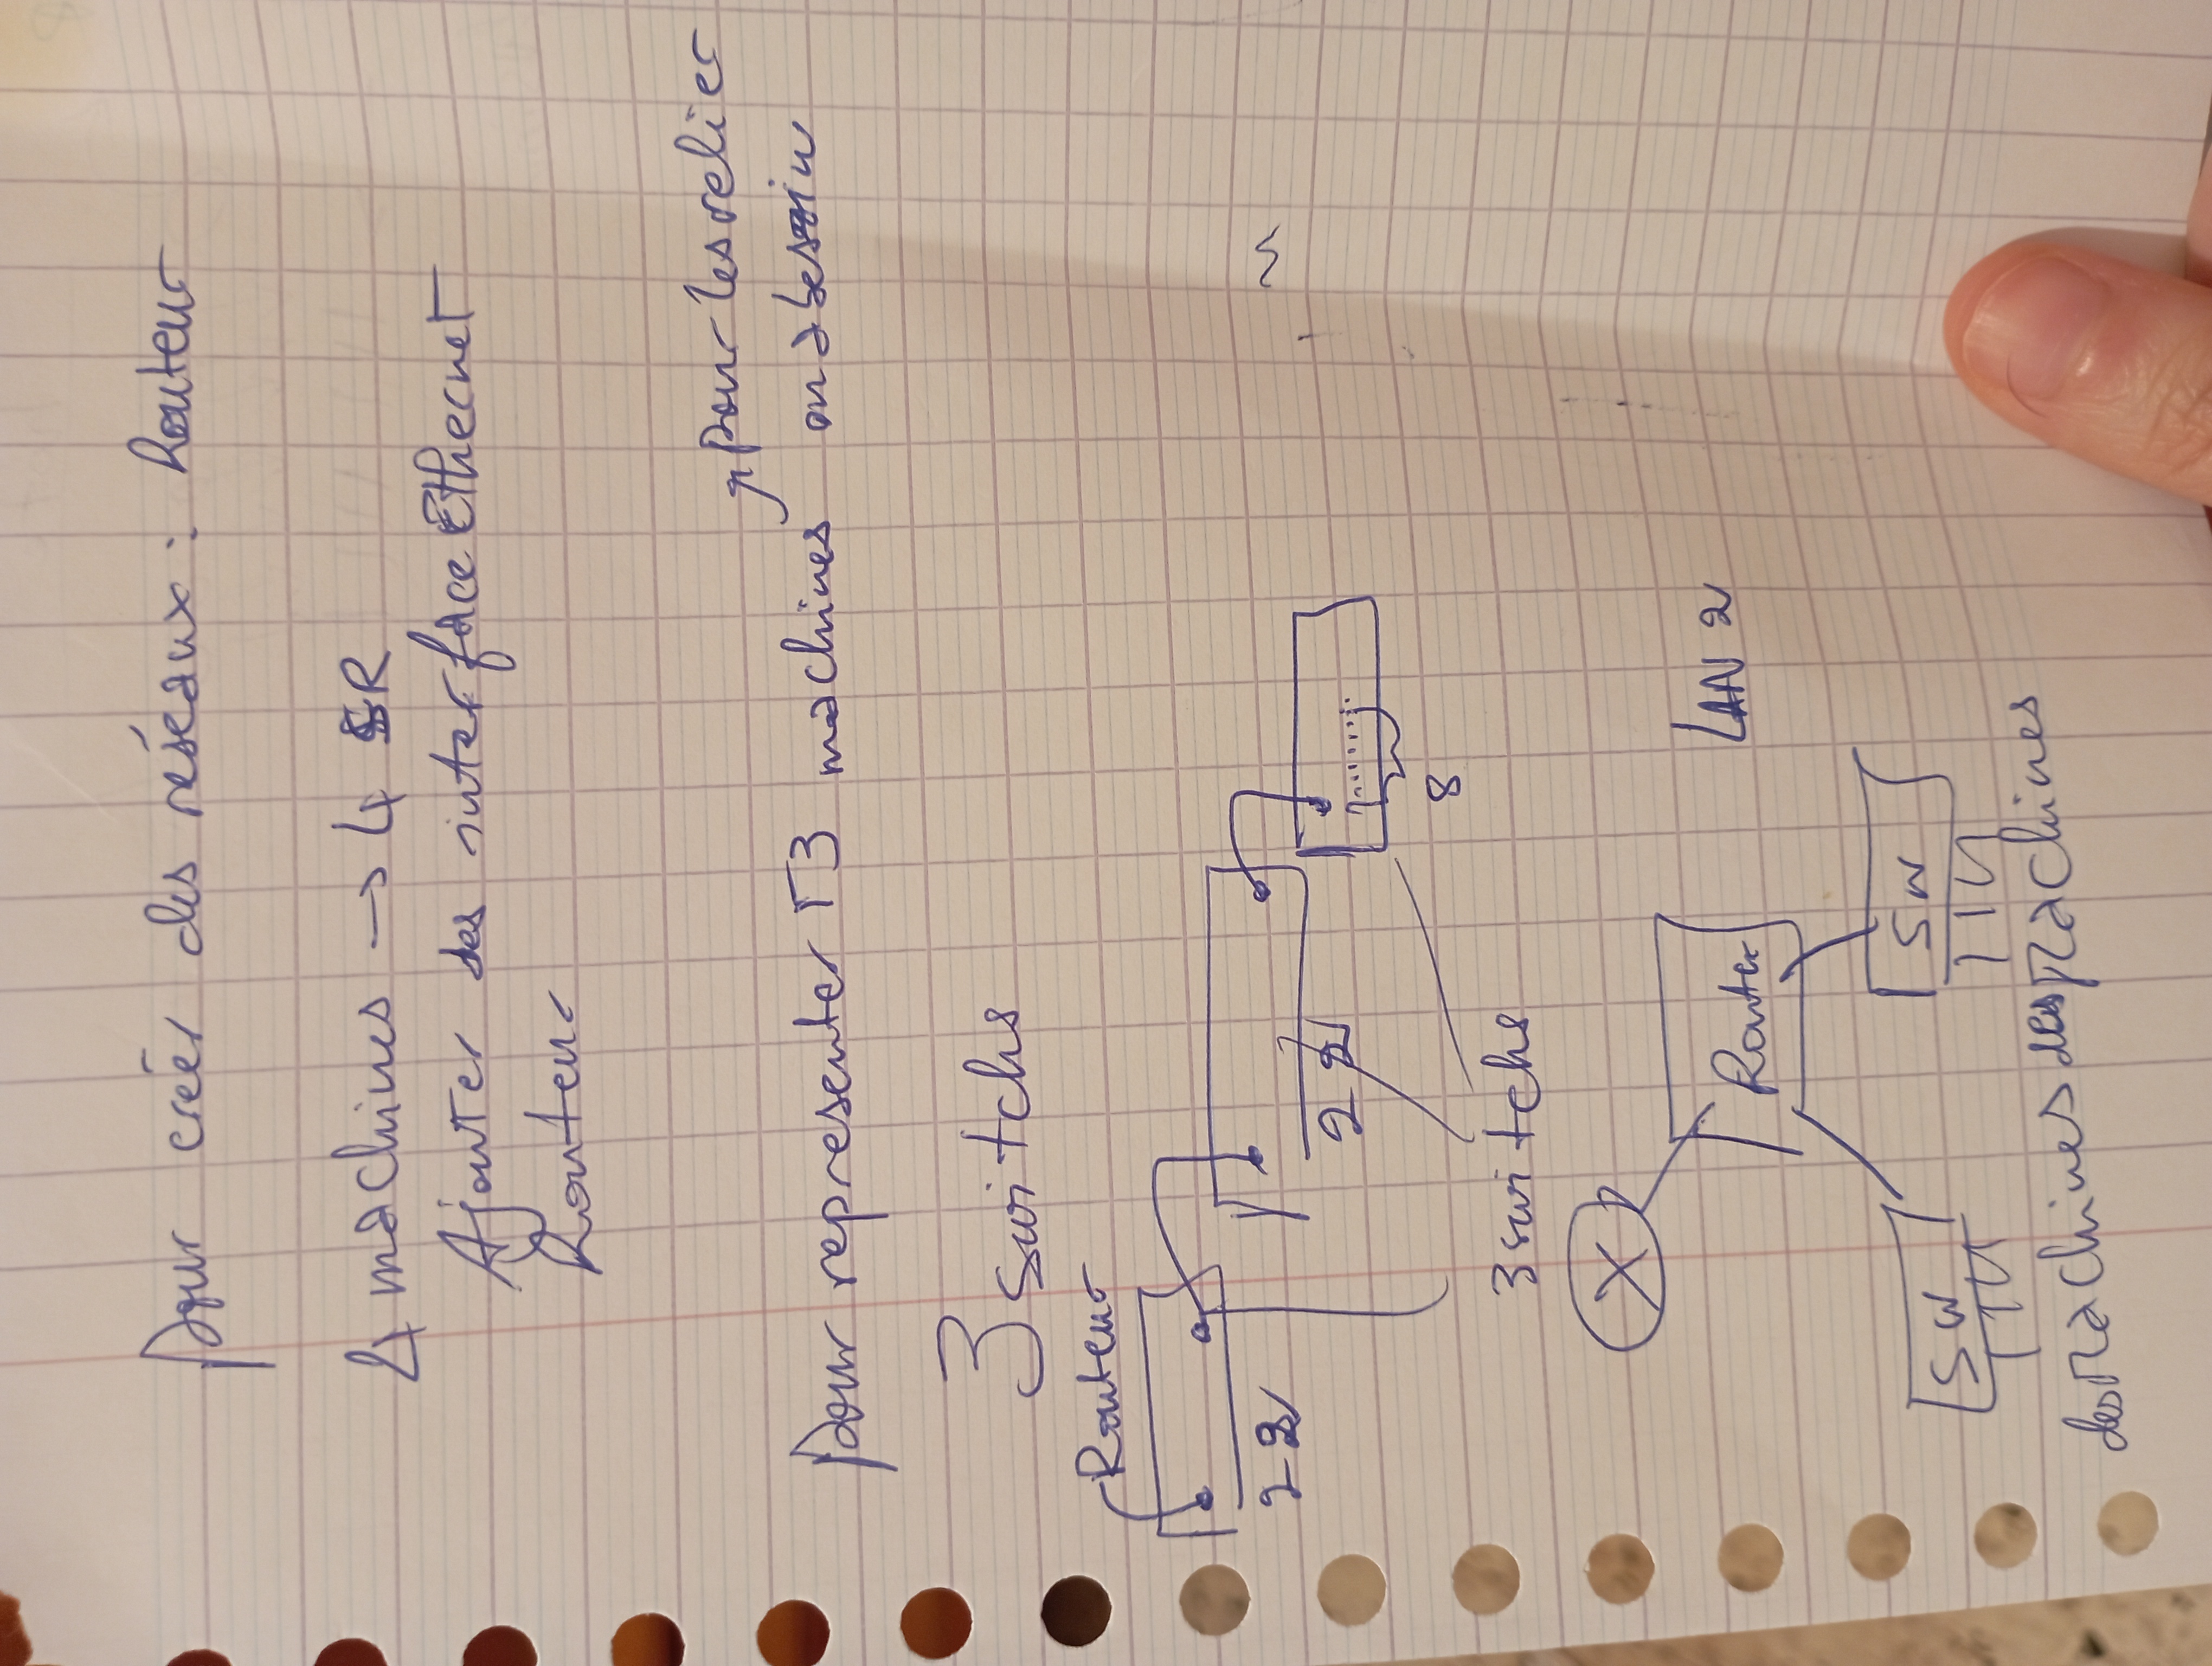 pour créér des réseaux : Routeur
4 machines → 4 SR
Ajouter des interface Ethernet
Routeur
↗ pour les relier
pour representer 53 machines on a besoin
3 switchs
Routeur
22
22
8
3 switchs
X
Router
LAN 2
SW
SW
des Machines des Machines